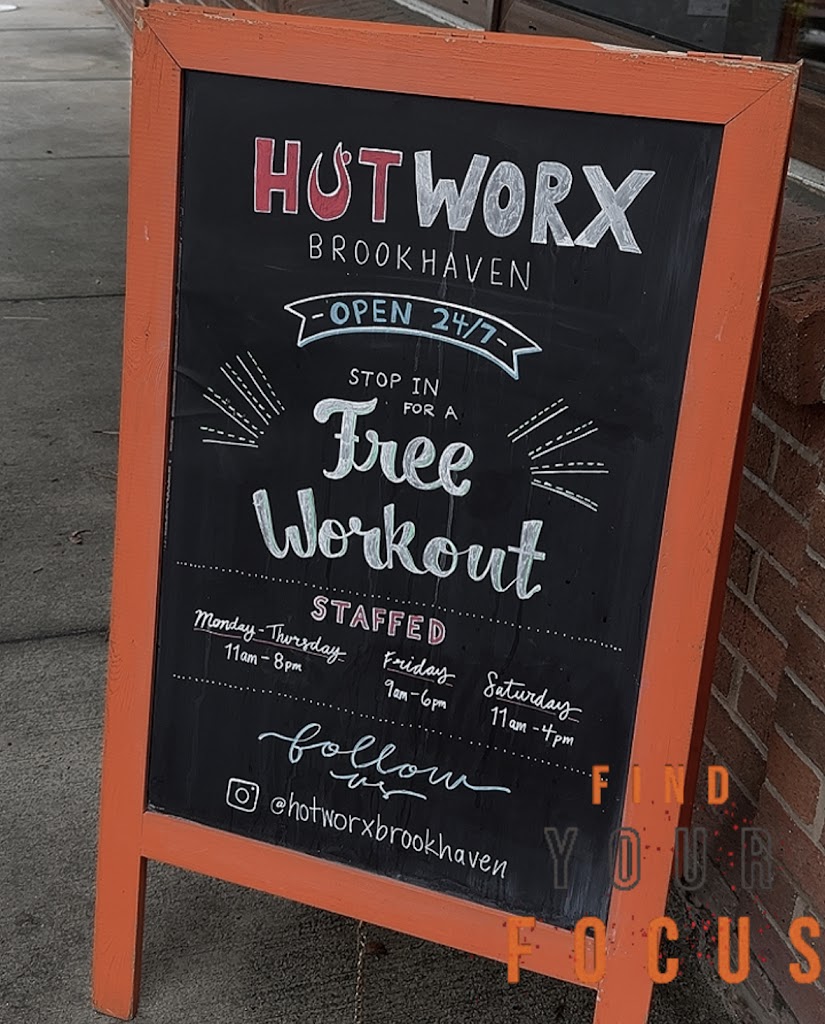 HOTWORX
BROOKHAVEN
-OPEN 24/7-
STOP IN
FOR A
Free
Workout
STAFFED
Monday-Thursday
11am-8pm
Friday
9am-6pm
Saturday
11am-4pm
follow
us
@hotworxbrookhaven
FIND
YOUR
FOCUS